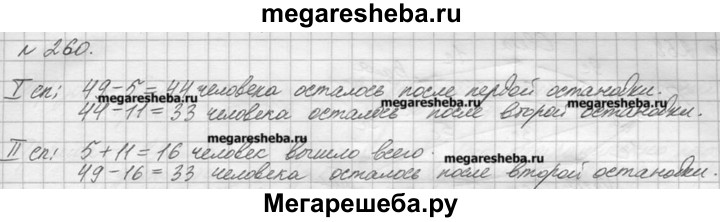 megaresheba.ru
№ 260.
I сп; 49-5=44 человека осталось после первой остановки.
megaresheba.ru megaresheba.ru megaresheba.ru
44-11=33 человека осталось после второй остановки.
megaresheba.ru
II сп! 5+11=16 человес вышло всего.
megaresheba.ru
49-16=33 человека осталось после второй остановки.
Мегарешеба.ру